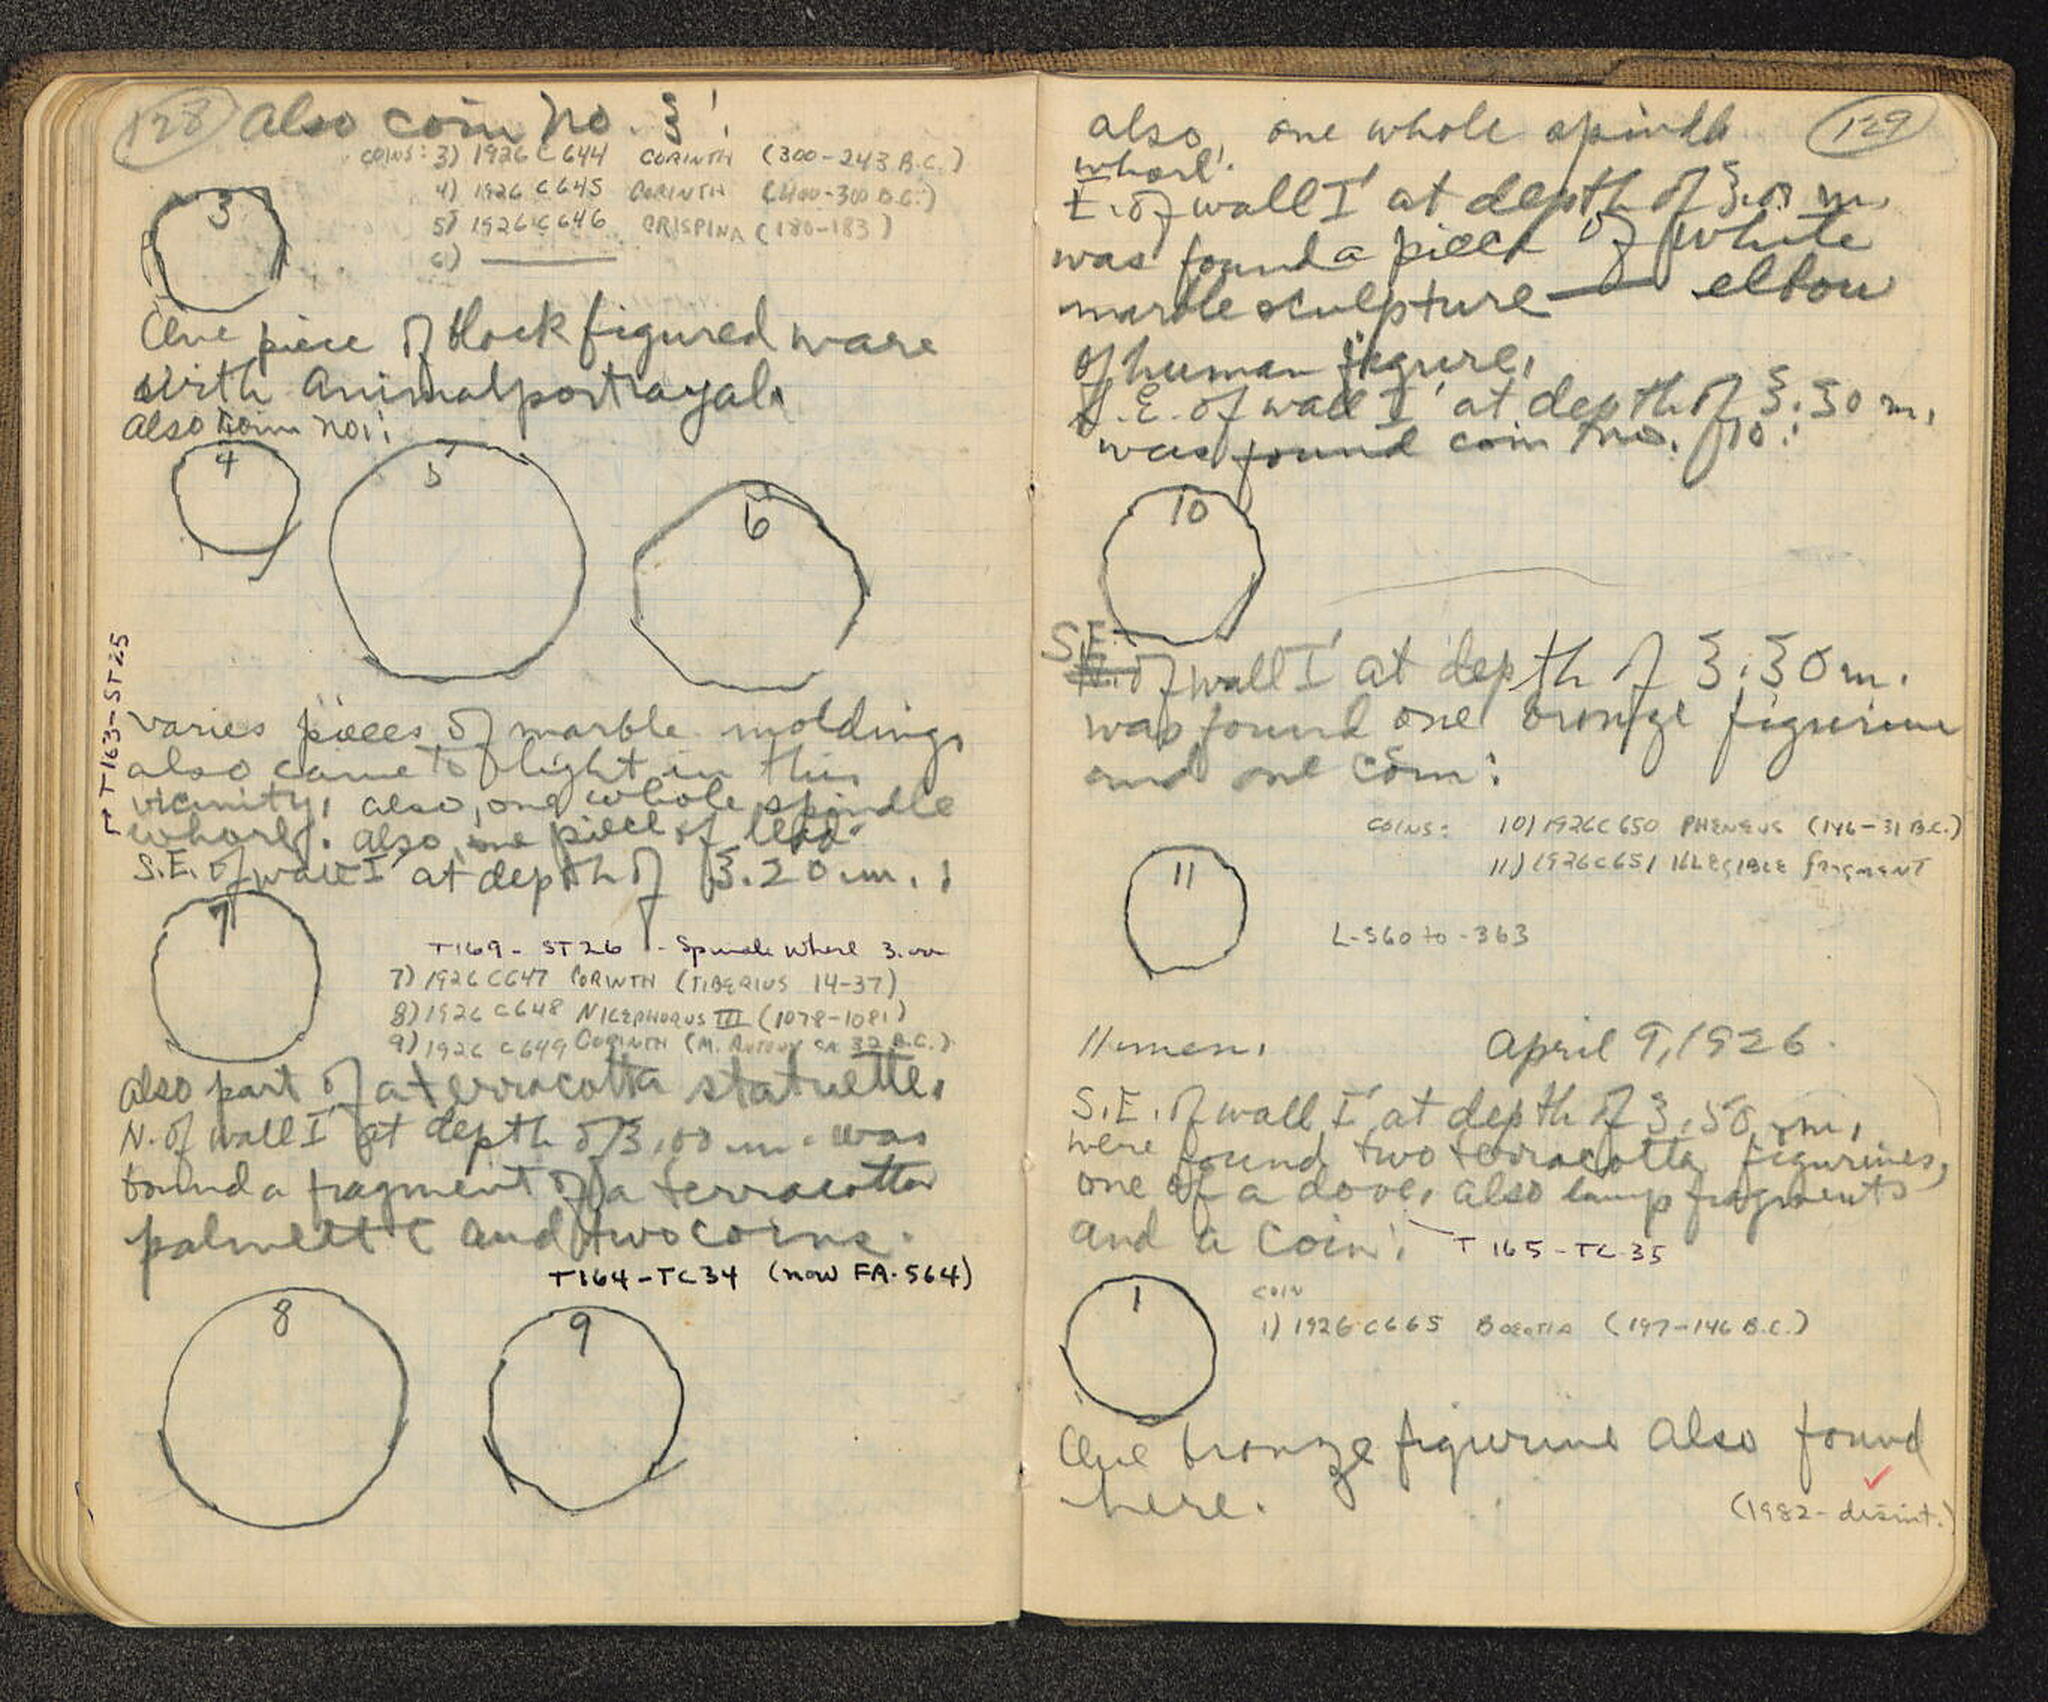 128
also coin no. 3:
COINS: 3) 1926 C 644 CORINTH (300-243 B.C.)
4) 1926 C 645 CORINTH (400-300 B.C.)
5) 1926 C 646 CRISPINA (180-183)
6) ———
3
One piece of black figured ware
with animal portrayal.
Also coin no.:
4
5
6
T163-ST25
varies pieces of marble moldings
also came to light in this
vicinity, also, one whole spindle
whorl. also, one piece of lead.
S.E. of wall I' at depth of 3.20 m. :
7
T169- ST26 - Spindle Whorl 3.00
7) 1926 C647 CORINTH (TIBERIUS 14-37)
8) 1926 C648 NICEPHORUS III (1078-1081)
9) 1926 C649 CORINTH (M. ANTONY CA 32 B.C.)
Also part of a terracotta statuette.
N. of wall I' at depth of 3.00 m. was
found a fragment of a terracotta
palmette and two coins.
T164-TC34 (now FA-564)
8
9
129
also, one whole spindle
whorl.
E. of wall I' at depth of 3.00 m.
was found a piece of white
marble sculpture — elbow
of human figure.
S.E. of wall I' at depth of 3.30 m.
was found coin no. 10:
10
S.E.
N. of wall I' at depth of 3.30 m.
was found one bronze figurine
and one coin:
COINS: 10) 1926 C 650 PHENEUS (146-31 B.C.)
11) 1926 C 651 ILLEGIBLE FRAGMENT
11
L-560 to -363
11 men. April 9, 1926.
S.E. of wall I' at depth of 3.50 m.
were found two terracotta figurines,
one of a dove, also lamp fragments
and a coin:
T 165-TC-35
1
COIN
1) 1926 C665 BOEOTIA (197-146 B.C.)
One bronze figurine also found
here.
(1982-disint.)